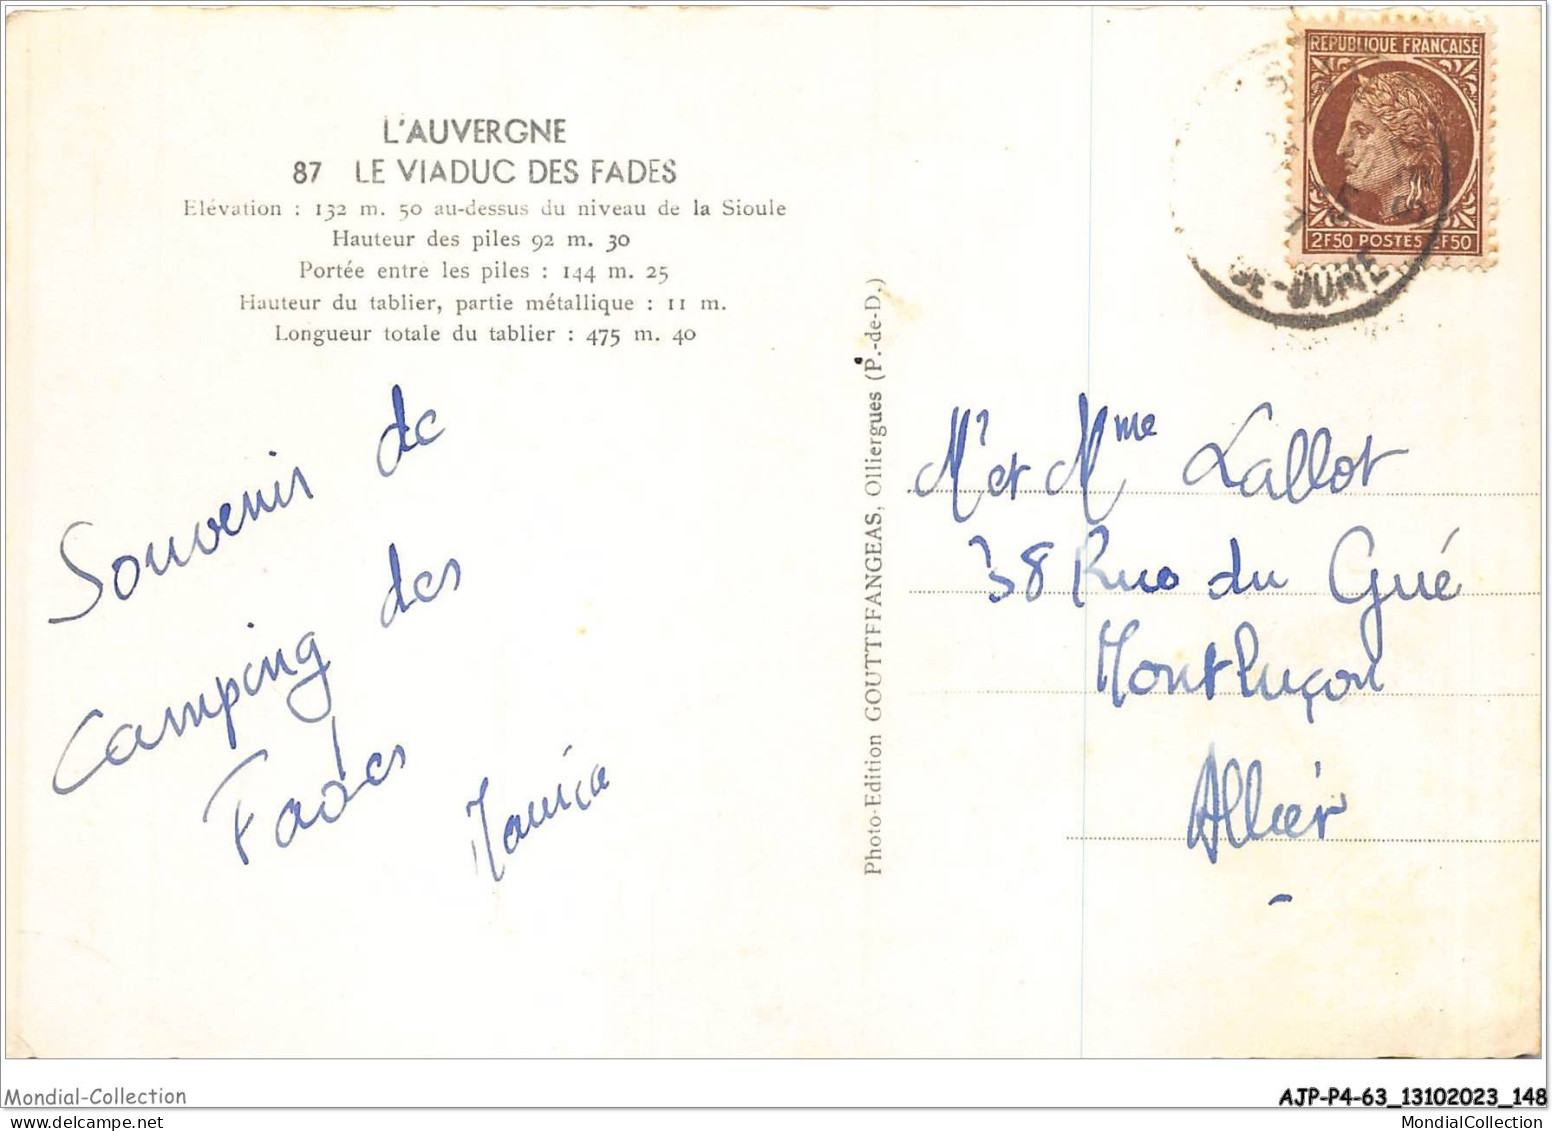 L'AUVERGNE
87 LE VIADUC DES FADES
Elévation : 132 m. 50 au-dessus du niveau de la Sioule
Hauteur des piles 92 m. 30
Portée entre les piles : 144 m. 25
Hauteur du tablier, partie métallique : 11 m.
Longueur totale du tablier : 475 m. 40
Souvenir de
camping des
Fades
Photo-Edition GOUTTEFANGEAS, Olliergues (P.-de-D.)
REPUBLIQUE FRANÇAISE
2F50 POSTES 2F50
DE-DOME
Mr et Mme Lallot
38 Rue du Gué
Montluçon
Allier
Mondial-Collection
AJP-P4-63_13102023_148
MondialCollection